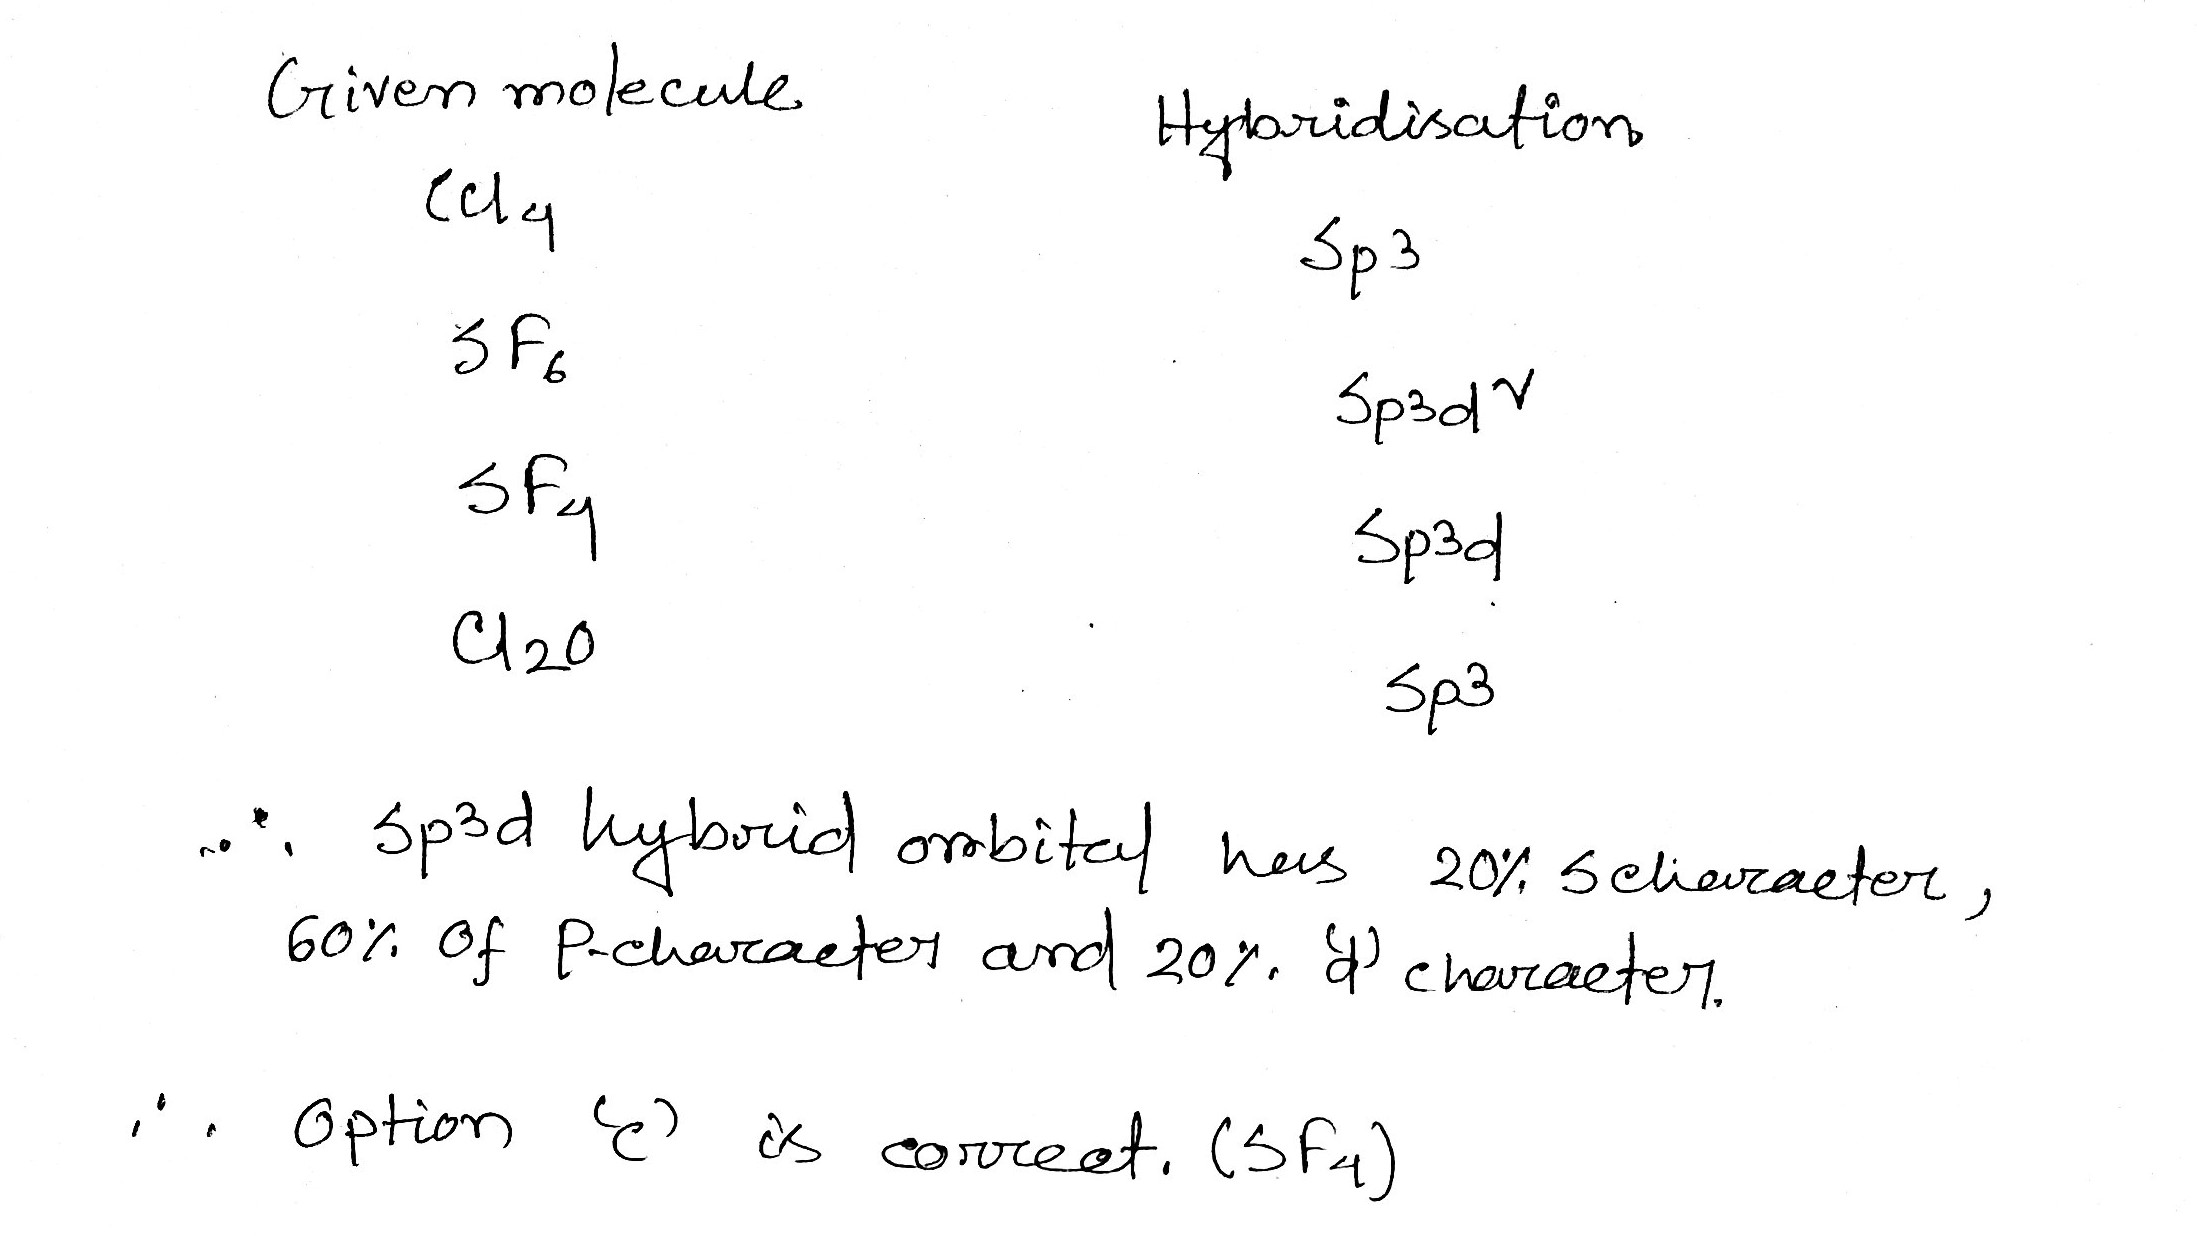 Given molecule Hybridisation
CCl4 Sp3
SF6 Sp3d²
SF4 Sp3d
Cl2O Sp3
∴ Sp3d hybrid orbital has 20% S character,
60% of P-character and 20% 'd' character.
∴ Option 'c' is correct. (SF4)